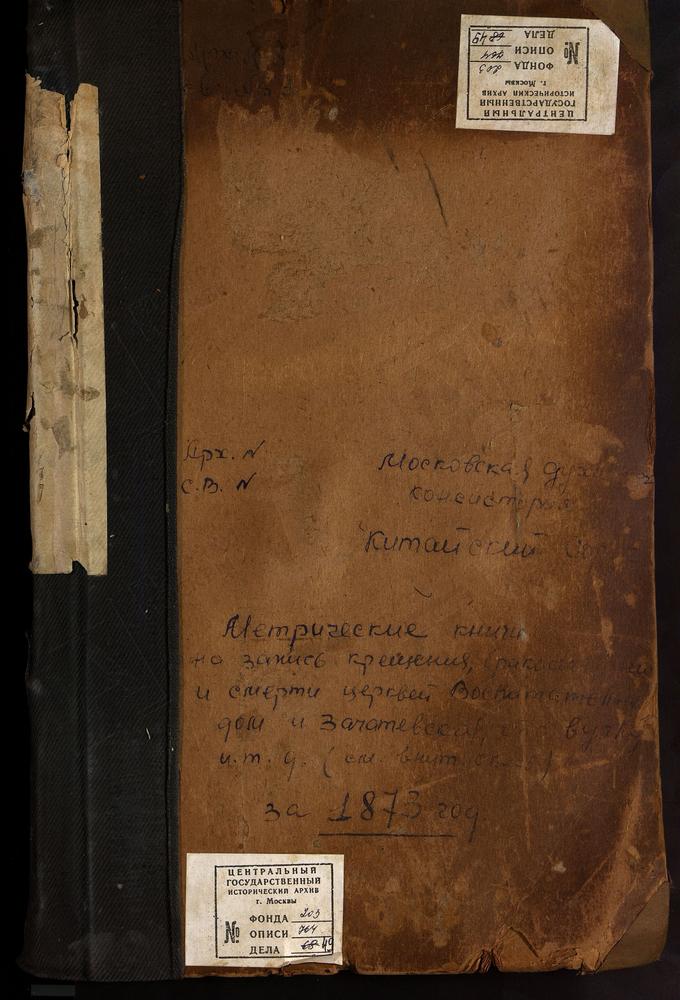 ЦЕНТРАЛЬНЫЙ
ГОСУДАРСТВЕННЫЙ
ИСТОРИЧЕСКИЙ АРХИВ
г. Москвы
№ ФОНДА 203
ОПИСИ 764
ДЕЛА
Арх. N
С.В. N
Московская
консистория
Китайский
Метрические книги
на запись крещения,
и смерти церквей
дом и Зачатьевской,
и.т.д. (см. внут.
за 1873 год
ЦЕНТРАЛЬНЫЙ
ГОСУДАРСТВЕННЫЙ
ИСТОРИЧЕСКИЙ АРХИВ
г. Москвы
№ ФОНДА 203
ОПИСИ 764
ДЕЛА